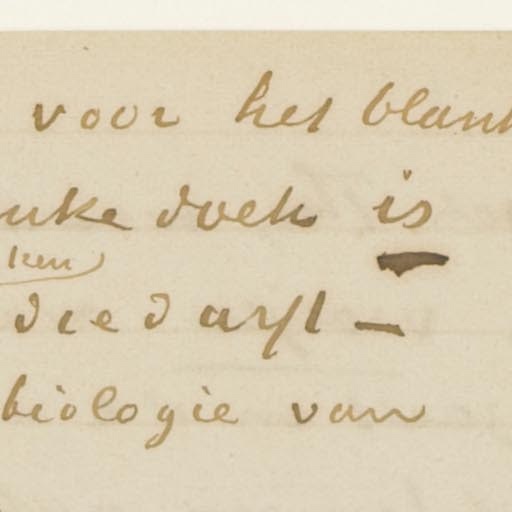 voor het blank
nke doek is
ken
die durft —
biologie van